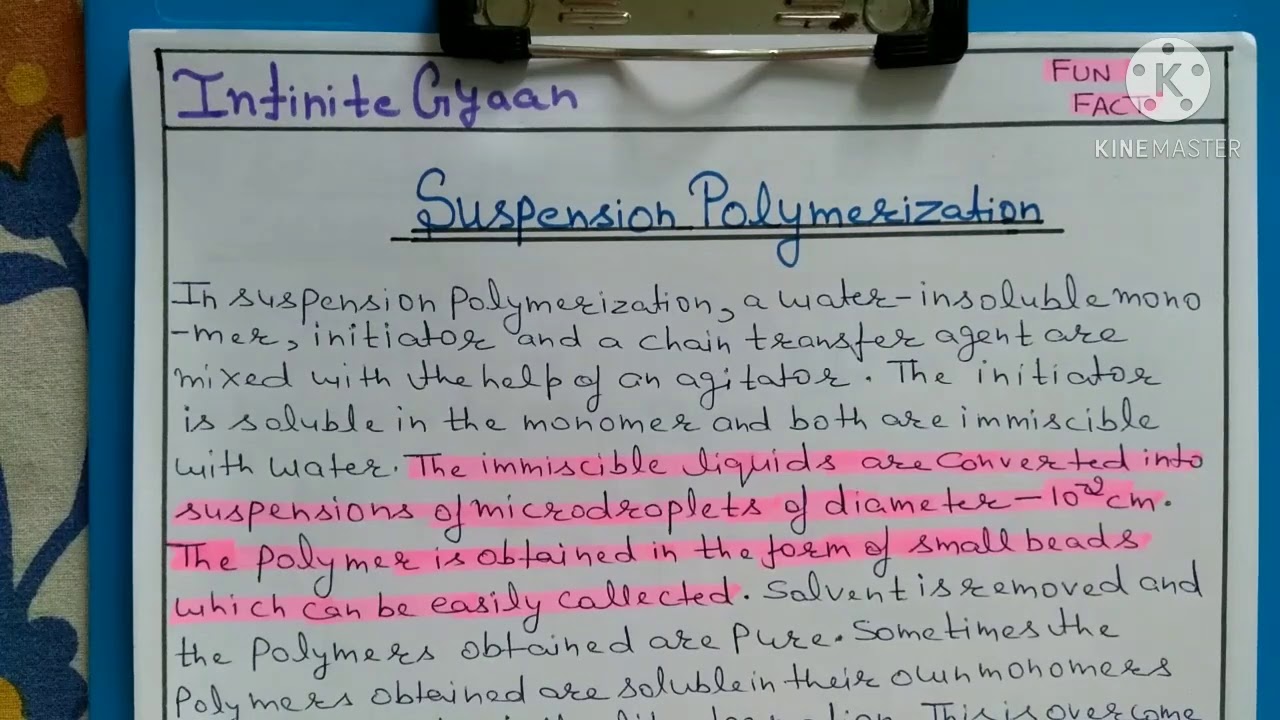 Infinite Gyaan
FUN
FACT
KINEMASTER
Suspension Polymerization
In suspension polymerization, a water-insoluble mono
-mer, initiator and a chain transfer agent are
mixed with the help of an agitator. The initiator
is soluble in the monomer and both are immiscible
with water. The immiscible liquids are converted into
suspensions of microdroplets of diameter - 10⁻² cm.
The polymer is obtained in the form of small beads
which can be easily collected. Solvent is removed and
the polymers obtained are pure. Sometimes the
polymers obtained are soluble in their own monomers
This is overcome